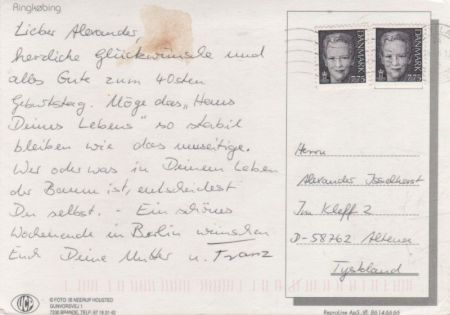 Ringkøbing
Lieber Alexander,
herzliche Glückwünsche und
alles Gute zum 40sten
Geburtstag. Möge das „Haus
Deines Lebens" so stabil
bleiben wie das umseitige.
Wer oder was in Deinem Leben
der Baum ist, entscheidest
Du selbst. - Ein schönes
Wochenende in Berlin wünschen
Euch Deine Mutter u. Franz
DANMARK 7.75
DANMARK 7.75
Herrn
Alexander
Im Kleff 2
D-58762 Altena
Tyskland
© FOTO: IB NEERUP HOUSTED
GUNVORSVEJ 1
7330 BRANDE, TLF. 97 18 01 02
ReproLine ApS. tlf. 86146666